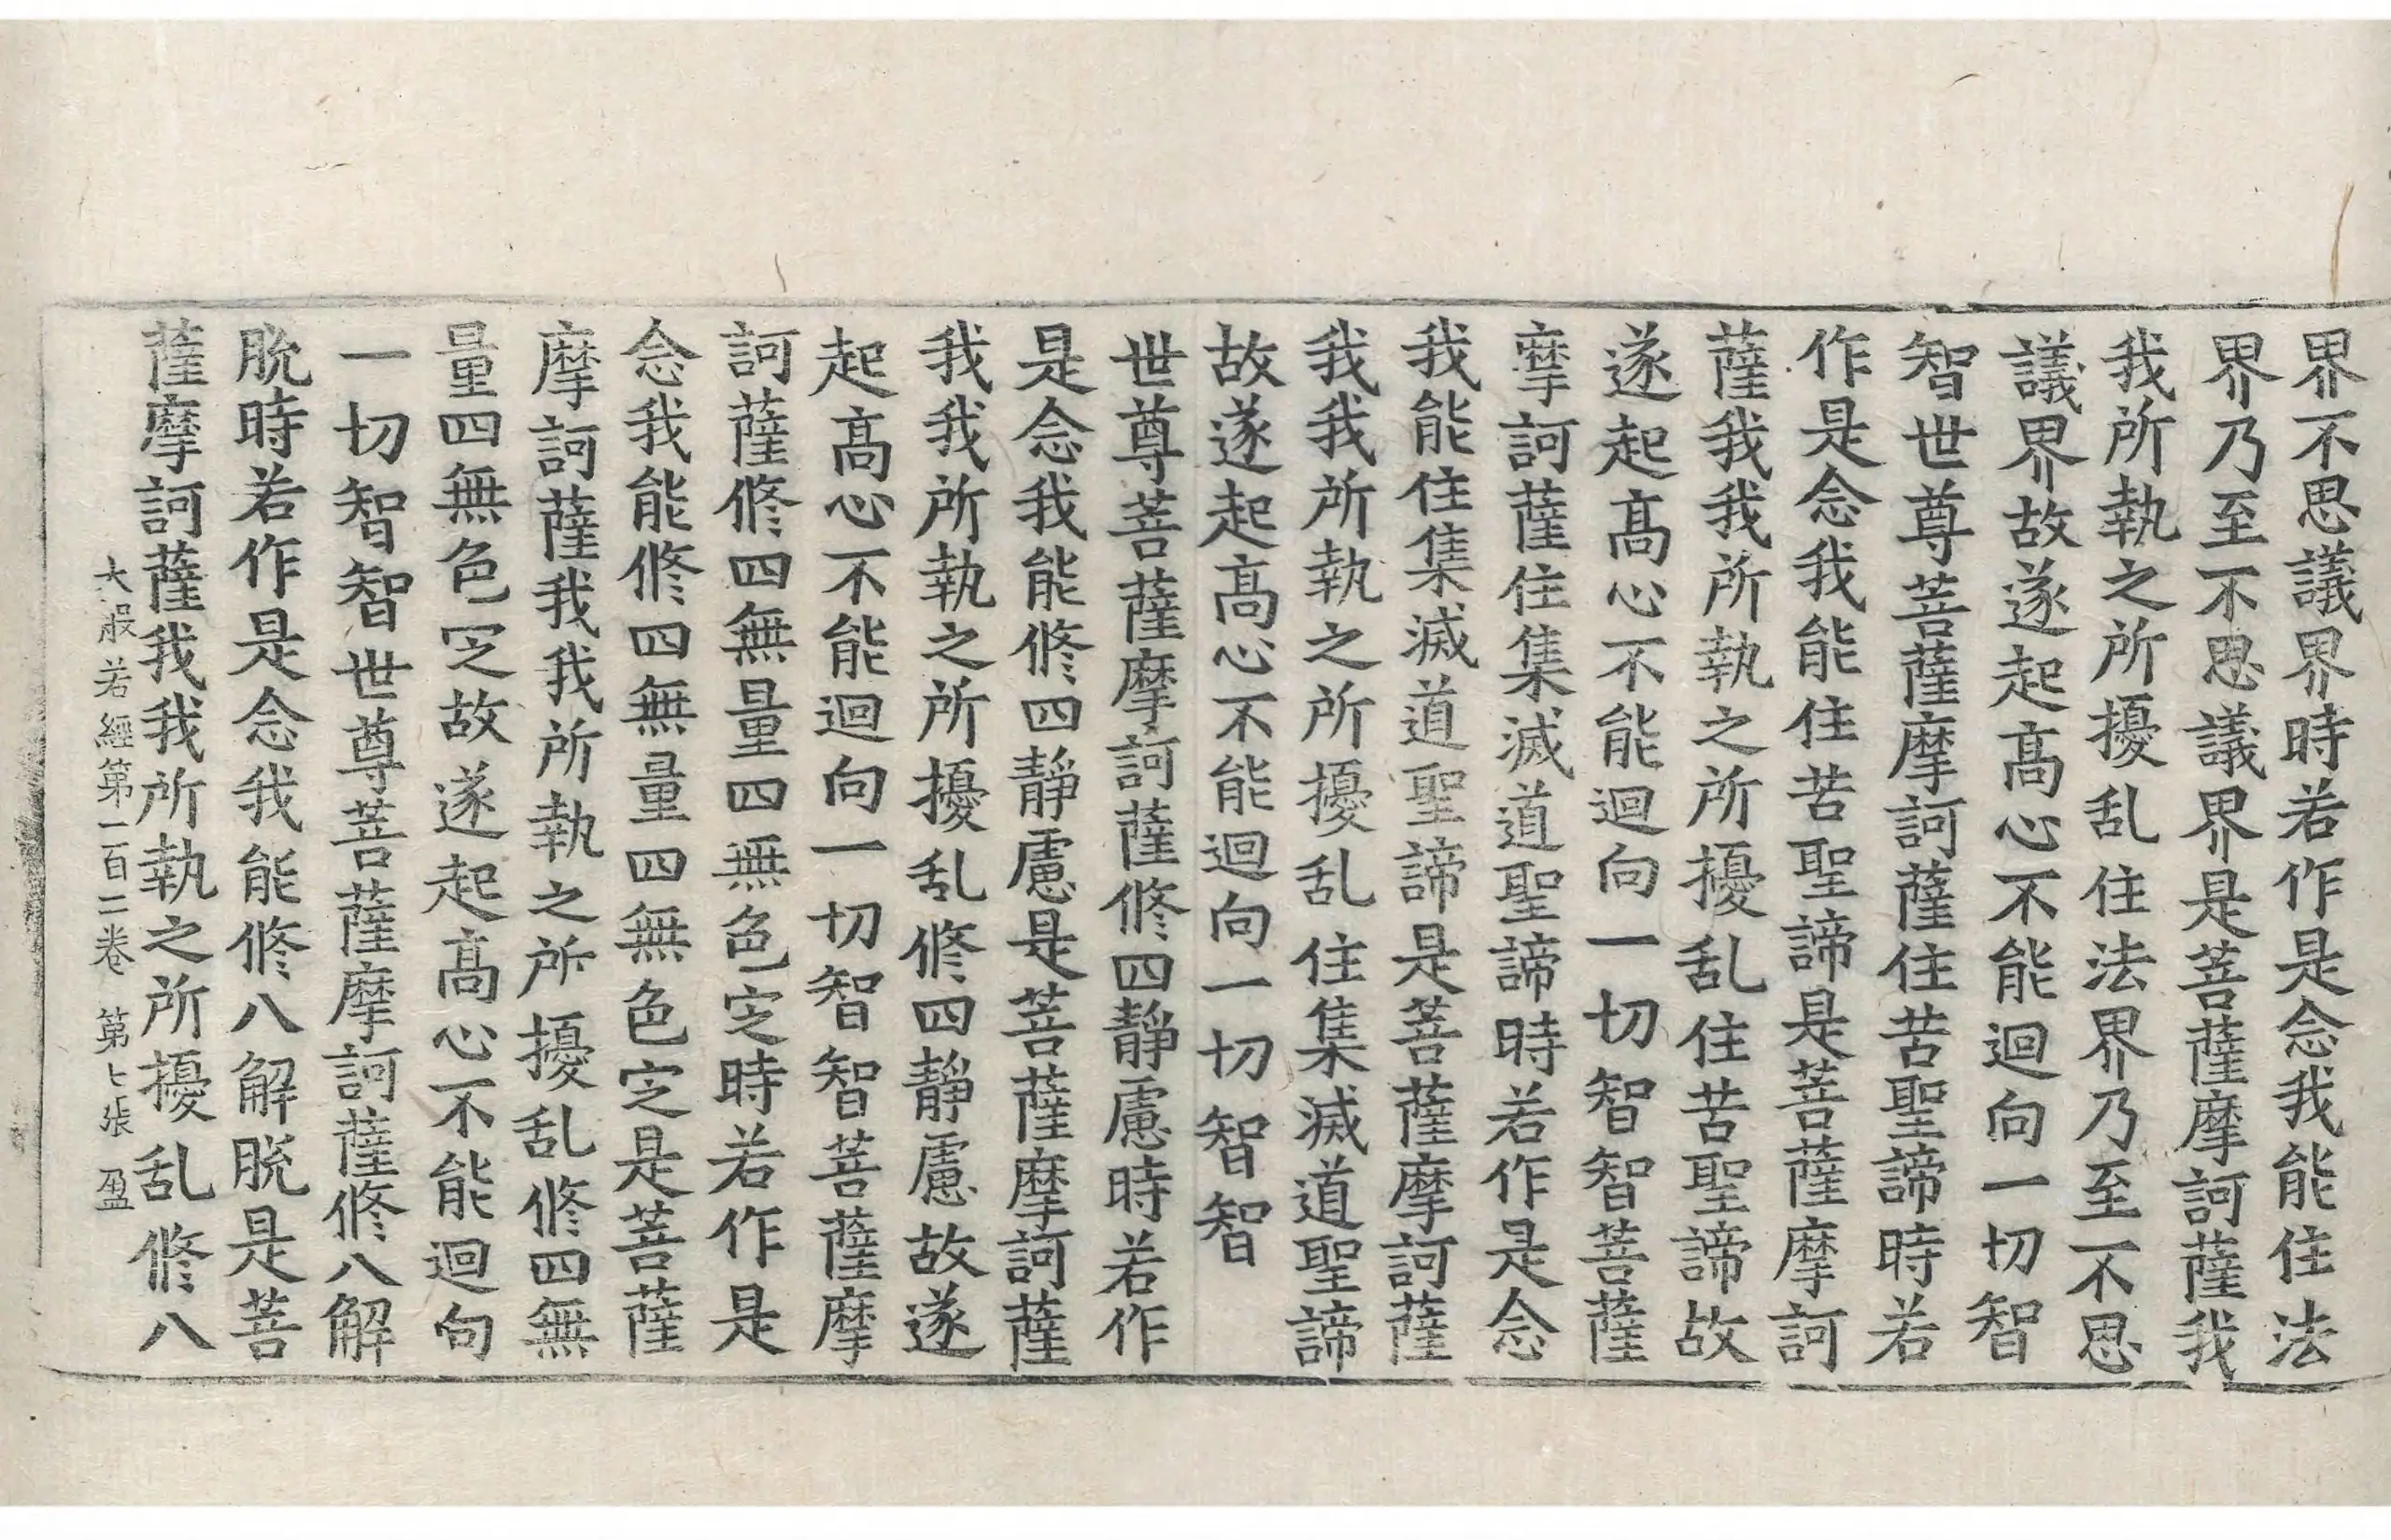 界不思議界時若作是念我能住法
界乃至不思議界是菩薩摩訶薩我
我所執之所擾乱住法界乃至不思
議界故遂起髙心不能迴向一切智
智世尊菩薩摩訶薩住苦聖諦時若
作是念我能住苦聖諦是菩薩摩訶
薩我我所執之所擾乱住苦聖諦故
遂起髙心不能迴向一切智智菩薩
摩訶薩住集滅道聖諦時若作是念
我能住集滅道聖諦是菩薩摩訶薩
我我所執之所擾乱住集滅道聖諦
故遂起髙心不能迴向一切智智
世尊菩薩摩訶薩修四靜慮時若作
是念我能修四靜慮是菩薩摩訶薩
我我所執之所擾乱修四靜慮故遂
起髙心不能迴向一切智智菩薩摩
訶薩修四無量四無色㝎時若作是
念我能修四無量四無色㝎是菩薩
摩訶薩我我所執之所擾乱修四無
量四無色㝎故遂起髙心不能迴向
一切智智世尊菩薩摩訶薩修八解
脫時若作是念我能修八解脫是菩
薩摩訶薩我我所執之所擾乱修八
大般若經第一百二卷 第七張 盈